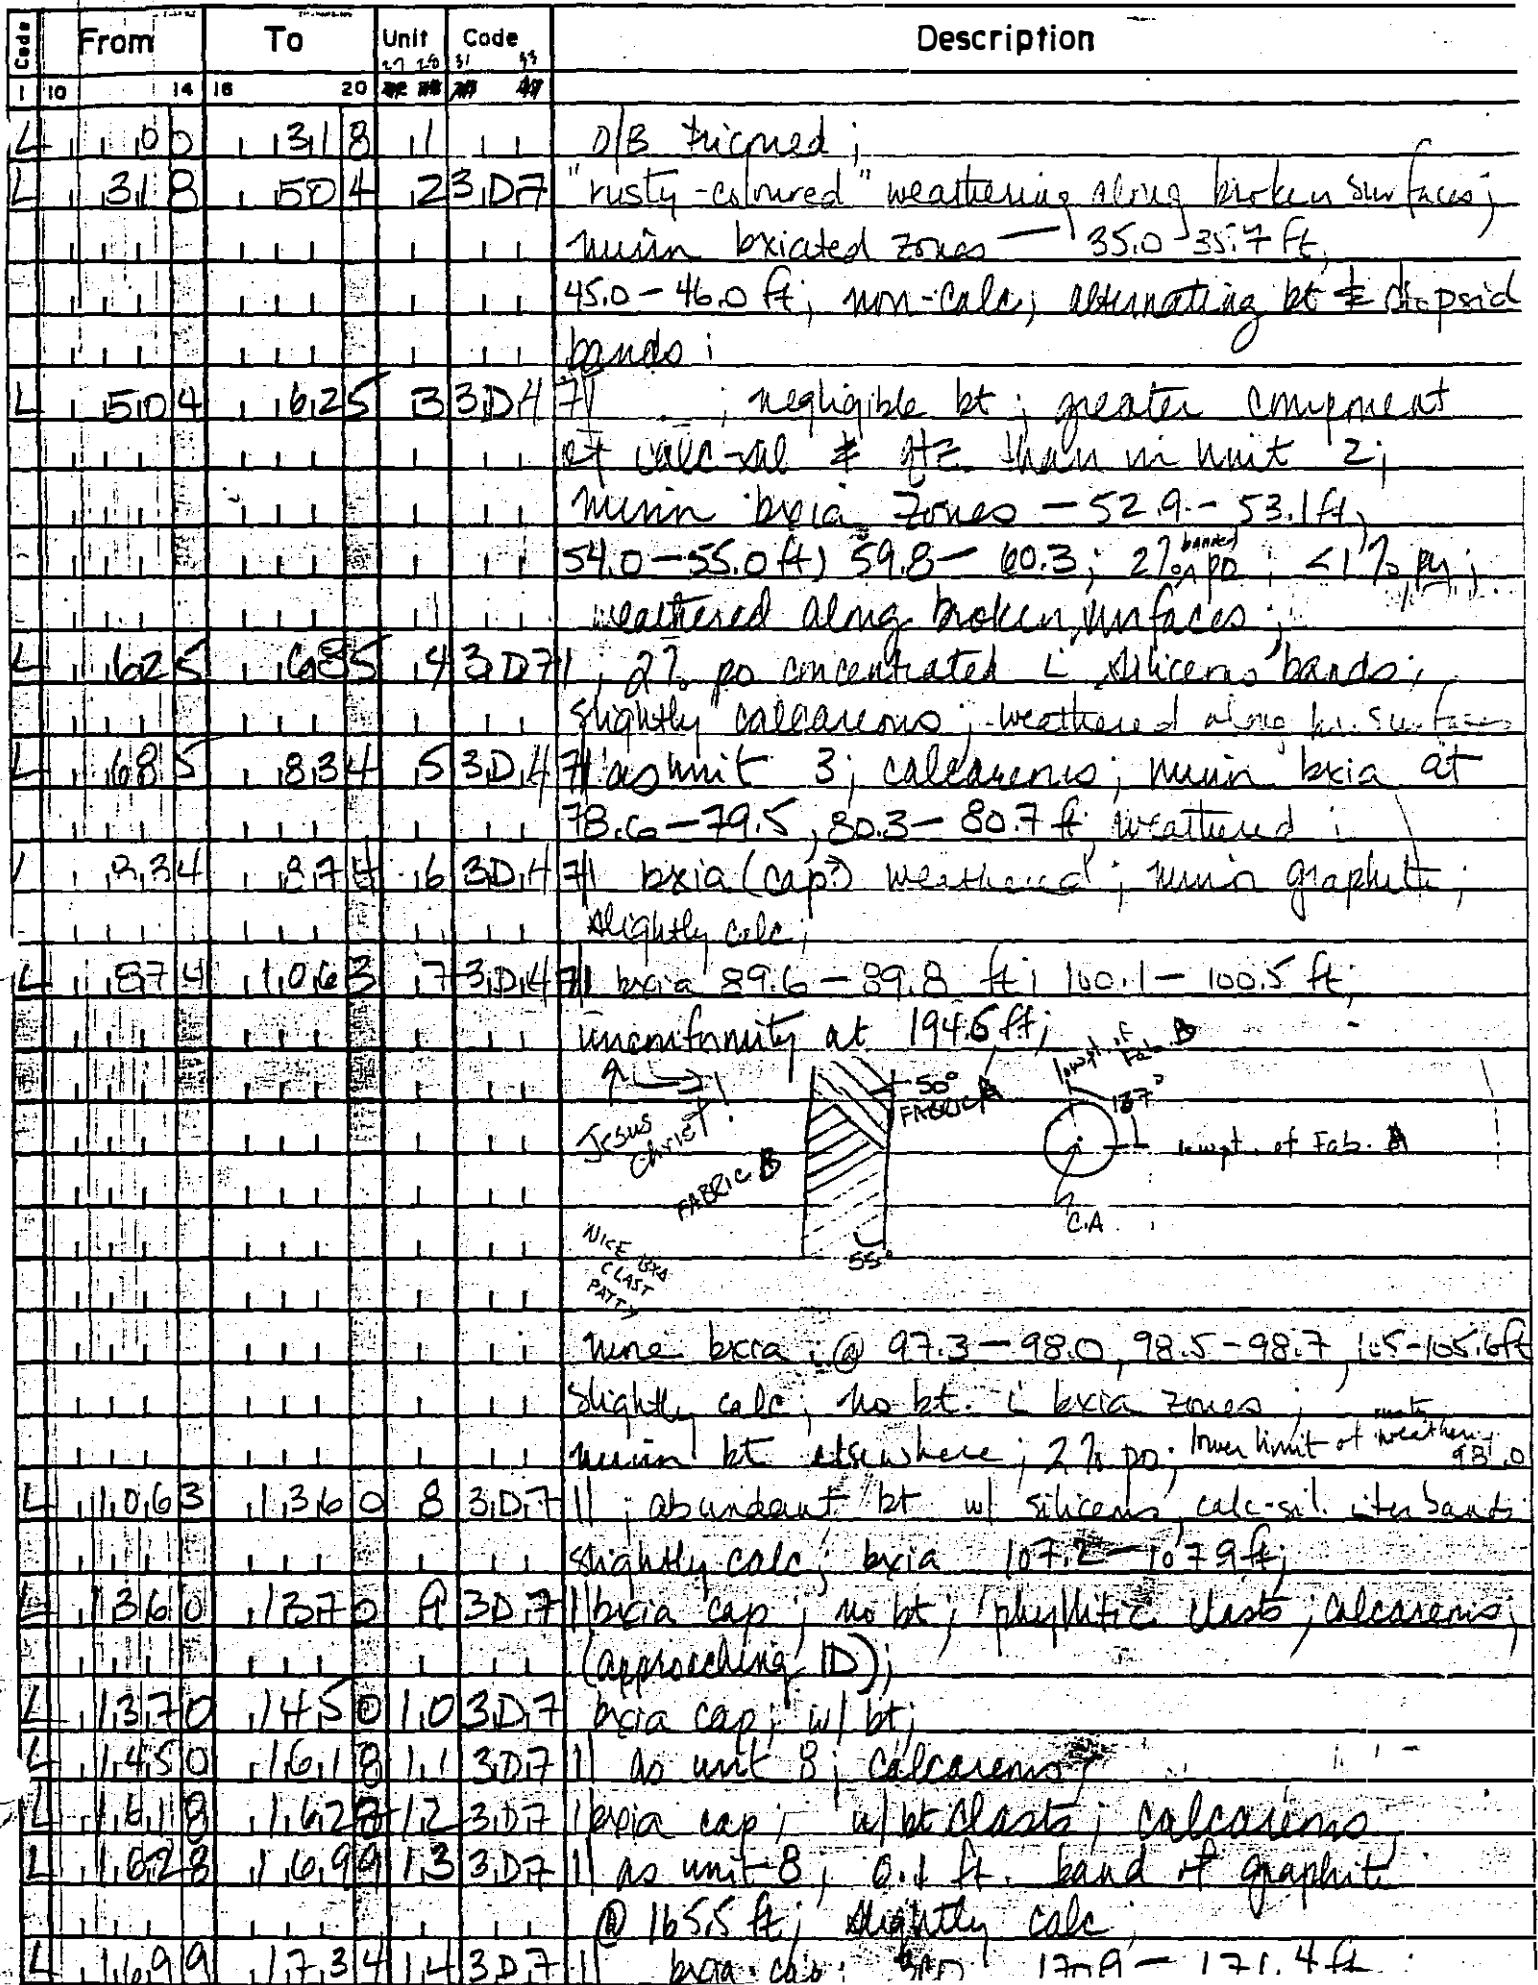 Code From To Unit Code Description
27 28 31 33
1 10 14 16 20
L 00 318 1 O/B tricored;
L 318 504 2 3D7 "rusty-coloured" weathering along broken surfaces;
minor bxiated zones — 35.0-35.7 ft,
45.0-46.0 ft; non-calc; alternating bt & diopsid
bands;
L 504 625 3 3D4 7 ; negligible bt; greater component
of calc-sil & qtz. than in unit 2;
minor bxia zones - 52.9 - 53.1 ft,
54.0-55.0 ft, 59.8- 60.3; 2% banded po; <1% py;
weathered along broken surfaces;
L 625 685 4 3D7 ; 2% po concentrated siliceous bands;
slightly calcareous; weathered along br. surfaces
L 685 834 5 3D4 7 as unit 3; calcareous; minor bxia at
78.6-79.5, 80.3-80.7 ft weathered;
L 834 874 6 3D4 7 bxia (cap?) weathered; minor graphite;
slightly calc;
L 874 1063 7 3D4 7 bxia 89.6-89.8 ft; 100.1-100.5 ft;
unconformity at 194.6 ft;
Jesus Christ!
50° FABRIC A
lowpt. of Fab. B
137°
lowpt. of Fab. A
FABRIC B
C.A.
55°
NICE BXA
CLAST
PATT
bxia; @ 97.3-98.0, 98.5-98.7, 105-105.6 ft
slightly calc; no bt. bxia zones;
minor bt elsewhere; 2% po; lower limit of weathering 98.0
L 1063 1360 8 3D7 ; abundant bt w/ siliceous, calc-sil. interbands
slightly calc; bxia 107.2-107.9 ft;
L 1360 1370 9 3D7 bxia cap; no bt; phyllitic clasts; calcareous;
(approaching 1D);
L 1370 1450 10 3D7 bxia cap; w/ bt;
L 1450 1618 11 3D7 as unit 8; calcareous;
L 1618 1628 12 3D7 bxia cap; w/ bt clasts; calcareous;
L 1628 1699 13 3D7 as unit 8; 0.1 ft. band of graphite
@ 165.5 ft; slightly calc;
L 1699 1734 14 3D7 bxia cap; 170.9-171.4 ft